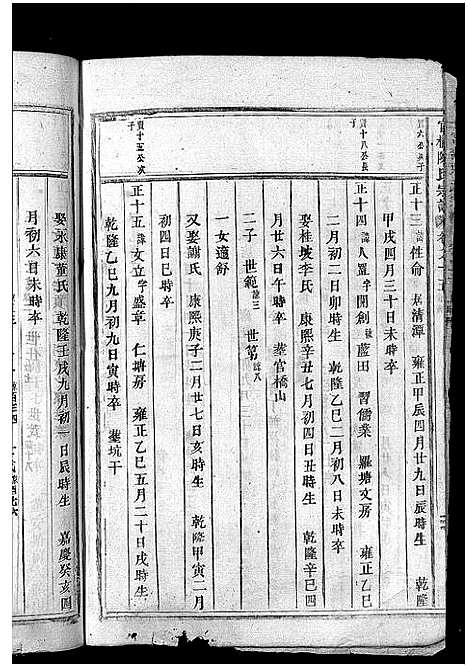 官橋陳氏宗譜 卷之十五
六公次子
正十三 諱性俞 居清潭 雍正甲辰四月廿九日辰時生 乾隆
甲戌四月三十日未時卒
貫十八公長子
正十四 諱人置 字開創 號藍田 習儒業 羅塘文房 雍正乙巳
二月初二日卯時生 乾隆乙巳二月初八日未時卒
娶桂坡李氏 康熙辛丑七月初四日丑時生 乾隆辛巳四
月廿六日午時卒 塟官橋山
二子 世範 諱三 世第 諱八
一女適舒
又娶謝氏 康熙庚子二月廿七日亥時生 乾隆甲寅二月
初四日巳時卒
貫十五公次子
正十五 諱文立 字盛章 仁塘房 雍正乙巳五月二十日戌時生
乾隆乙巳九月初九日寅時卒 塟坑干
娶永康董氏 乾隆壬戌九月初一日辰時生 嘉慶癸亥四
月初六日未時卒